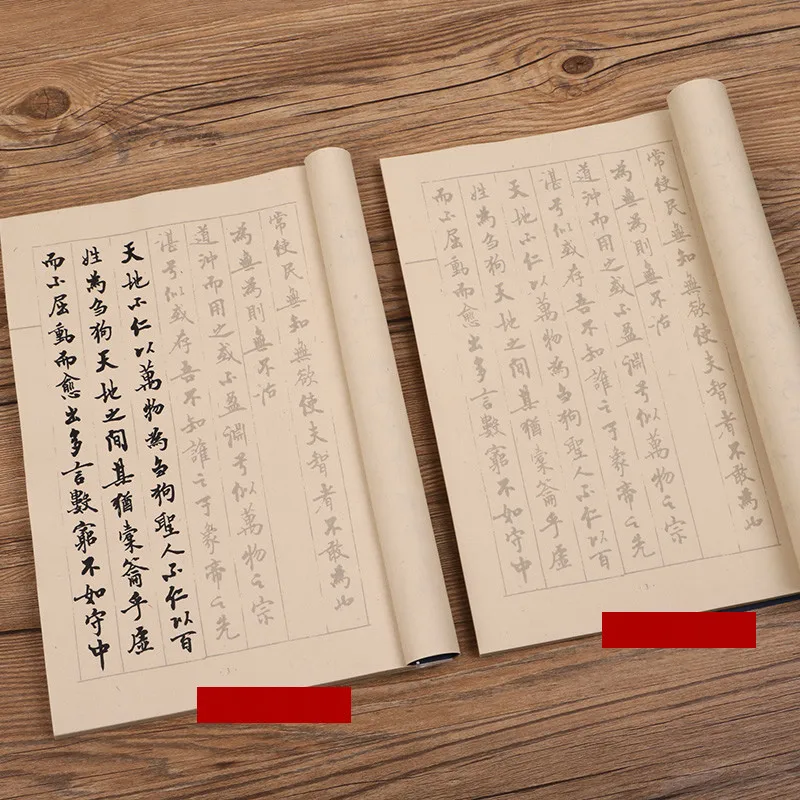 常使民無知無欲使夫智者不敢為也
為無為則無不治
道沖而用之或不盈淵兮似萬物之宗
湛兮似或存吾不知誰之子象帝之先
天地不仁以萬物為芻狗聖人不仁以百
姓為芻狗天地之間其猶橐籥乎虛
而不屈動而愈出多言數窮不如守中
常使民無知無欲使夫智者不敢為也
為無為則無不治
道沖而用之或不盈淵兮似萬物之宗
湛兮似或存吾不知誰之子象帝之先
天地不仁以萬物為芻狗聖人不仁以百
姓為芻狗天地之間其猶橐籥乎虛
而不屈動而愈出多言數窮不如守中